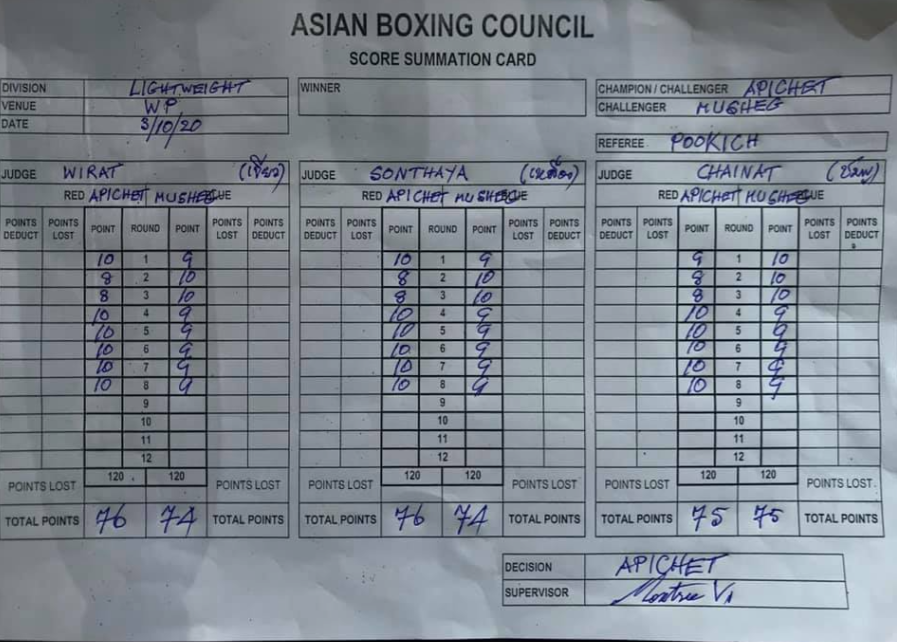 ASIAN BOXING COUNCIL
SCORE SUMMATION CARD
DIVISION LIGHTWEIGHT
VENUE WP
DATE 3/10/20
WINNER
CHAMPION / CHALLENGER APICHET
CHALLENGER MUSHEG
REFEREE POOKICH
JUDGE WIRAT
RED APICHET MUSHEG
POINTS DEDUCT POINTS LOST POINT ROUND POINT POINTS LOST POINTS DEDUCT
10 1 9
8 2 10
8 3 10
10 4 9
10 5 9
10 6 9
10 7 9
10 8 9
9
10
11
12
120 120
POINTS LOST POINTS LOST
TOTAL POINTS 76 74 TOTAL POINTS
JUDGE SONTHAYA
RED APICHET MUSHEG
POINTS DEDUCT POINTS LOST POINT ROUND POINT POINTS LOST POINTS DEDUCT
10 1 9
8 2 10
8 3 10
10 4 9
10 5 9
10 6 9
10 7 9
10 8 9
9
10
11
12
120 120
POINTS LOST POINTS LOST
TOTAL POINTS 76 74 TOTAL POINTS
JUDGE CHAINAT
RED APICHET MUSHEG
POINTS DEDUCT POINTS LOST POINT ROUND POINT POINTS LOST POINTS DEDUCT
9 1 10
8 2 10
8 3 10
10 4 9
10 5 9
10 6 9
10 7 9
10 8 9
9
10
11
12
120 120
POINTS LOST POINTS LOST
TOTAL POINTS 75 75 TOTAL POINTS
DECISION APICHET
SUPERVISOR